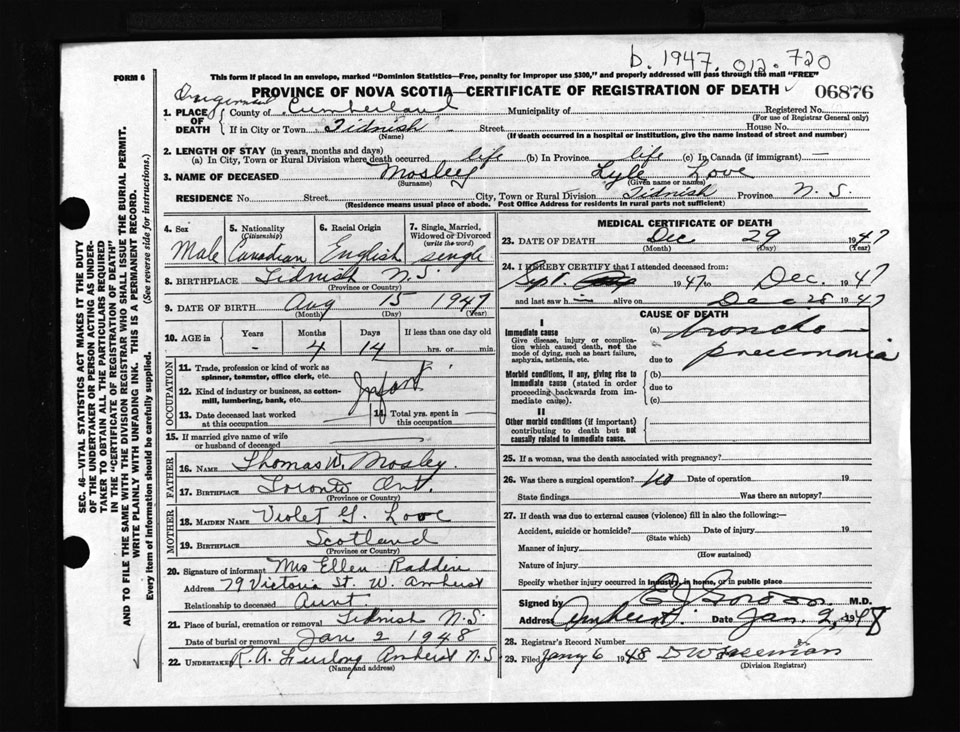 b. 1947. 012. 720
FORM 6
This form if placed in an envelope, marked "Dominion Statistics—Free, penalty for improper use $300," and properly addressed will pass through the mail "FREE"
PROVINCE OF NOVA SCOTIA—CERTIFICATE OF REGISTRATION OF DEATH
06876
1. PLACE OF DEATH
County of Cumberland Municipality of Registered No.
(For use of Registrar General only)
If in City or Town Tidnish Street House No.
(Name) (If death occurred in a hospital or institution, give the name instead of street and number)
2. LENGTH OF STAY (in years, months and days)
(a) In City, Town or Rural Division where death occurred life (b) In Province life (c) In Canada (if immigrant) —
3. NAME OF DECEASED Mosley Lyle Love
(Surname) (Given name or names)
RESIDENCE No. Street City, Town or Rural Division Tidnish Province N. S.
(Residence means usual place of abode. Post Office Address for residents in rural parts not sufficient)
4. Sex 5. Nationality (Citizenship) 6. Racial Origin 7. Single, Married, Widowed or Divorced (write the word)
Male Canadian English single
8. BIRTHPLACE Tidnish N.S.
(Province or Country)
9. DATE OF BIRTH Aug 15 1947
(Month) (Day) (Year)
10. AGE in Years Months Days If less than one day old
- 4 14 hrs. or min.
OCCUPATION
11. Trade, profession or kind of work as spinner, teamster, office clerk, etc.
12. Kind of industry or business, as cotton-mill, lumbering, bank, etc.
Infant
13. Date deceased last worked at this occupation 14. Total yrs. spent in this occupation
15. If married give name of wife or husband of deceased
FATHER
16. NAME Thomas W. Mosley.
17. BIRTHPLACE Toronto Ont.
(Province or Country)
MOTHER
18. MAIDEN NAME Violet G. Love
19. BIRTHPLACE Scotland
(Province or Country)
20. Signature of informant Mrs Ellen Raddin
Address 79 Victoria St. W. Amherst
Relationship to deceased Aunt
21. Place of burial, cremation or removal Tidnish N.S
Date of burial or removal Jan 2 1948
22. UNDERTAKER R. A. Furlong Amherst N.S.
(Name and address)
MEDICAL CERTIFICATE OF DEATH
23. DATE OF DEATH Dec 29 1947
(Month) (Day) (Year)
24. I HEREBY CERTIFY that I attended deceased from:
Sept. 1947 to Dec. 1947
and last saw h alive on Dec 28 1947
CAUSE OF DEATH
I
Immediate cause
Give disease, injury or complication which caused death, not the mode of dying, such as heart failure, asphyxia, asthenia, etc.
(a) broncho
due to pneumonia
Morbid conditions, if any, giving rise to immediate cause (stated in order proceeding backwards from immediate cause).
(b)
due to
(c)
II
Other morbid conditions (if important) contributing to death but not causally related to immediate cause.
25. If a woman, was the death associated with pregnancy?
26. Was there a surgical operation? no Date of operation 19
State findings Was there an autopsy?
27. If death was due to external causes (violence) fill in also the following:—
Accident, suicide or homicide? Date of injury 19
(State which)
Manner of injury
(How sustained)
Nature of injury
Specify whether injury occurred in industry, in home, or in public place
Signed by M.D.
Address Amherst Date Jan. 2, 1948
28. Registrar's Record Number
29. Filed Jany 6 1948
(Division Registrar)
SEC. 46—VITAL STATISTICS ACT MAKES IT THE DUTY
OF THE UNDERTAKER OR PERSON ACTING AS UNDER-
TAKER TO OBTAIN ALL THE PARTICULARS REQUIRED
IN THE "CERTIFICATE OF REGISTRATION OF DEATH"
AND TO FILE THE SAME WITH THE DIVISION REGISTRAR WHO SHALL ISSUE THE BURIAL PERMIT.
WRITE PLAINLY WITH UNFADING INK. THIS IS A PERMANENT RECORD.
Every item of information should be carefully supplied. (See reverse side for instructions.)